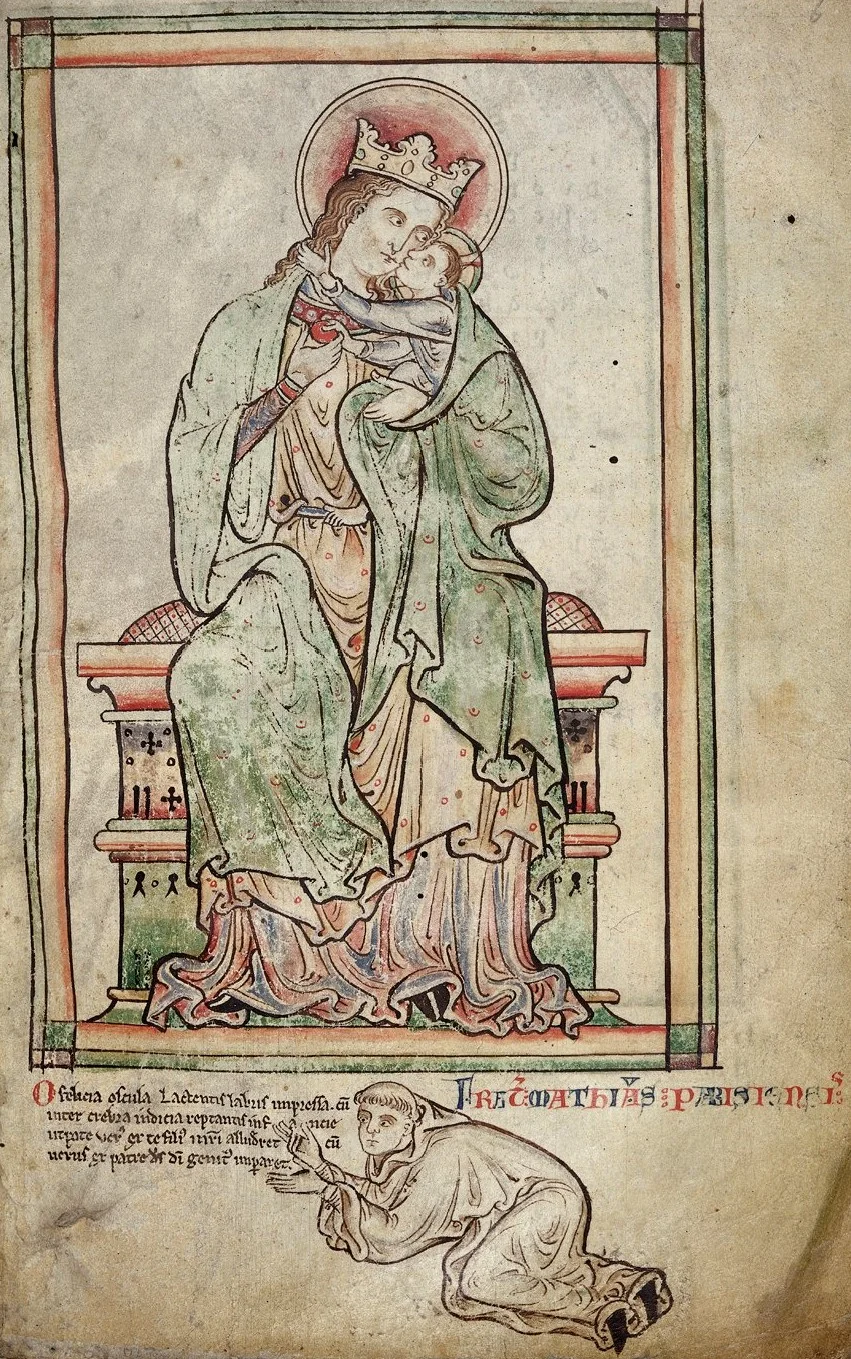 O felicia oscula lactentis labris impressa. cū
inter crebra indicia reptantis inf ancię
utpote verꝰ ex te filiꝰ m̄ri alludret cū
verus ex patre dī genitꝰ imparet.
FRAT̄ MATHIAS PARISIENSIS